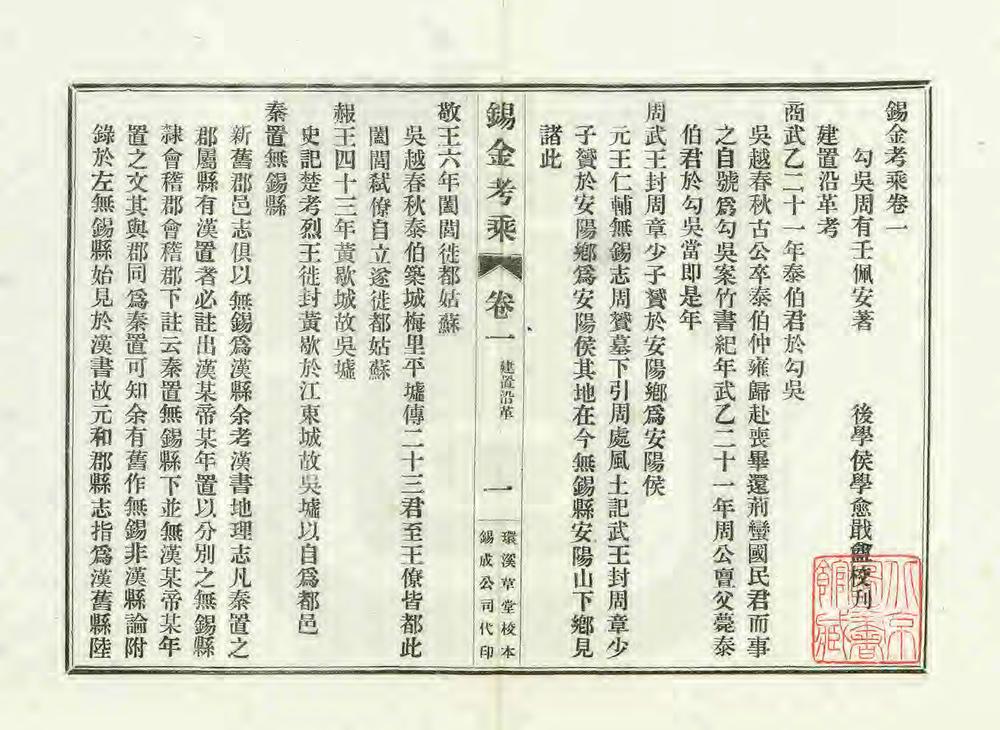 錫金考乘卷一
勾吳周有壬佩安著　後學侯學愈戢盫校刊
建置沿革考
商武乙二十一年泰伯君於勾吳
吳越春秋古公卒泰伯仲雍歸赴喪畢還荊蠻國民君而事
之自號爲勾吳案竹書紀年武乙二十一年周公亶父薨泰
伯君於勾吳當即是年
周武王封周章少子贇於安陽鄉爲安陽侯
元王仁輔無錫志周贇墓下引周處風土記武王封周章少
子贇於安陽鄉爲安陽侯其地在今無錫縣安陽山下鄉見
諸此
錫金考乘　卷一　建置沿革　一
環溪草堂校本
錫成公司代印
敬王六年闔閭徙都姑蘇
吳越春秋泰伯築城梅里平墟傳二十三君至王僚皆都此
闔閭弒僚自立遂徙都姑蘇
赧王四十三年黃歇城故吳墟
史記楚考烈王徙封黃歇於江東城故吳墟以自爲都邑
秦置無錫縣
新舊郡邑志俱以無錫爲漢縣余考漢書地理志凡秦置之
郡屬縣有漢置者必註出漢某帝某年置以分別之無錫縣
隸會稽郡會稽郡下註云秦置無錫縣下並無漢某帝某年
置之文其與郡同爲秦置可知余有舊作無錫非漢縣論附
錄於左無錫縣始見於漢書故元和郡縣志指爲漢舊縣陸